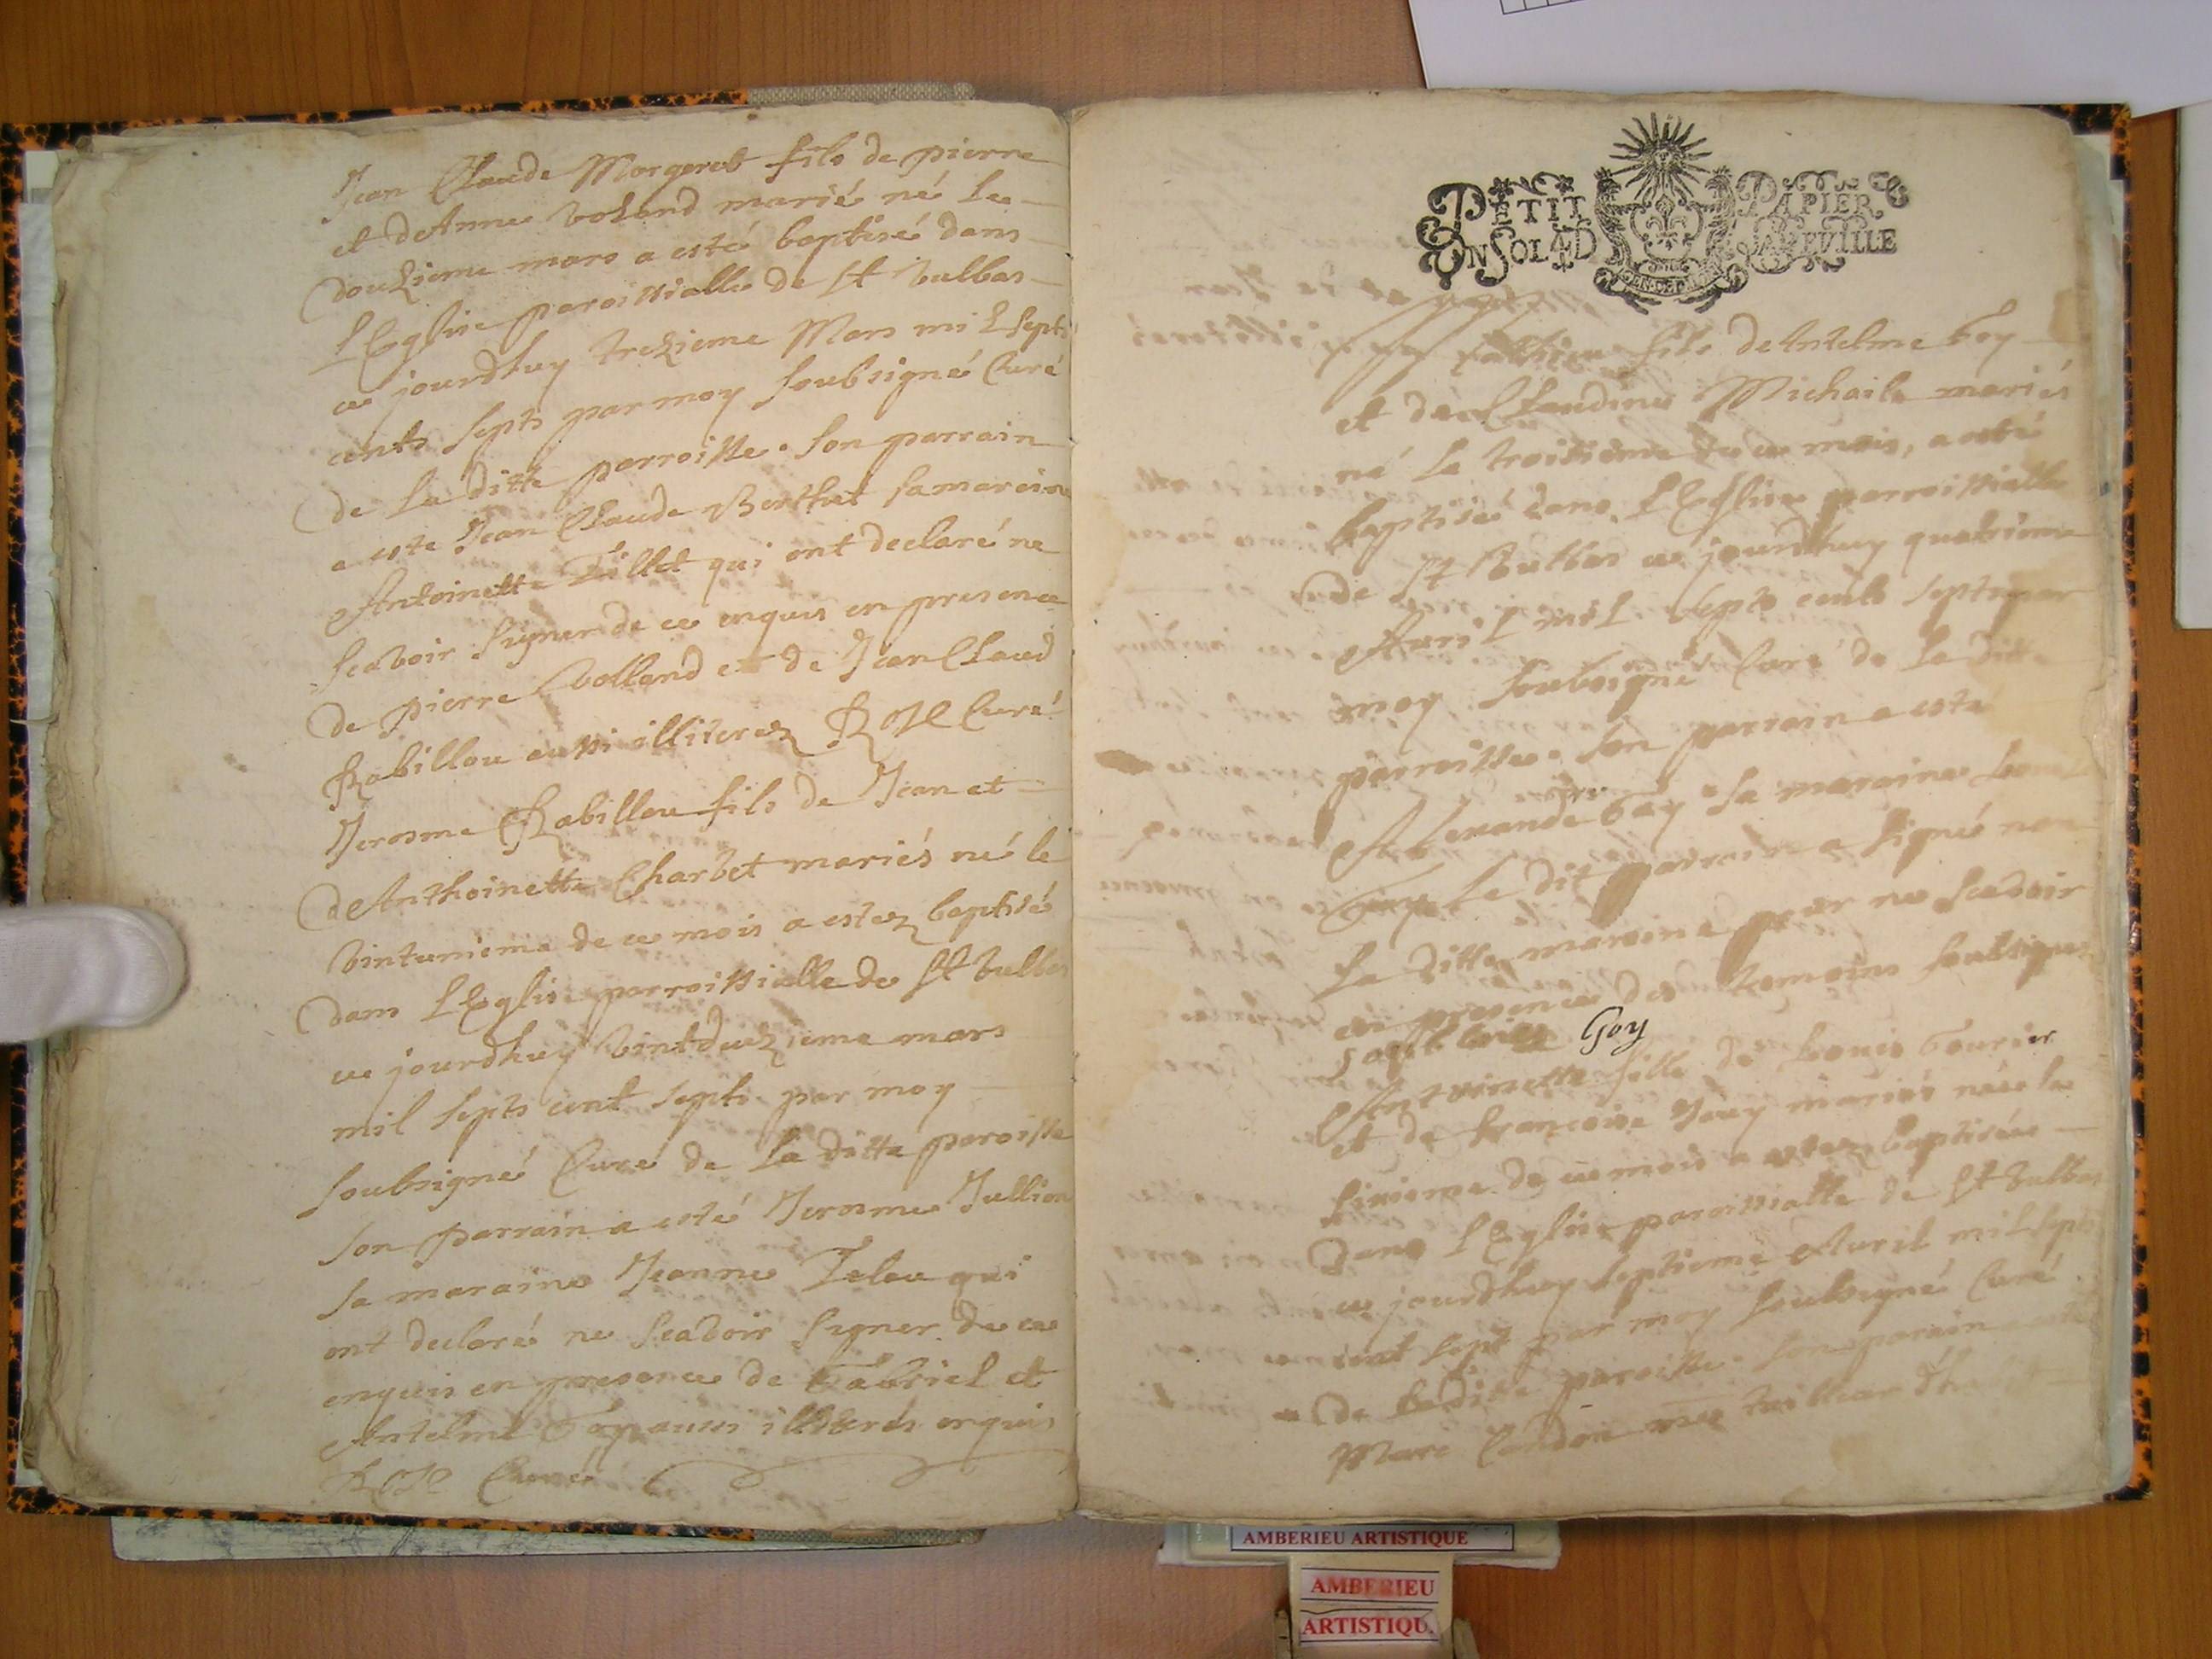 Jean Claude Morgeret fils de pierre
et deAnne volland marié né le
douzieme mars a esté baptisé dans
l'Eglise paroissialle de St Vulbas
ce jourdhuy trezieme Mars mil septs
cents septs par moy soubsigné Curé
de la ditte parroisse. son parrain
a este Jean Claude Berthet sa maraine
Antoinette Tillet qui ont declaré ne
scavoir signer de ce enquis en presence
de pierre Volland et de Jean Claud
Rabillou aussi illiterez ROSE Curé
Jerosme Rabillou fils de Jean et
deAnthoinette Charbet mariés né le
vintunieme de ce mois a estez baptisé
dans l'Eglise parroissialle de St Vulbas
ce jourdhuy vintduezieme mars
mil septs cent septs par moy
soubsigné Curé de la ditte paroisse
son parrain a esté Jerosme Jullien
sa maraine Jeanne qui
ont declaré ne scavoir signer de ce
enquis en presence de Gabriel et
Antelme aussi illiterés enquis
ROSE Curé
PETIT PAPIER
UN SOL 4 D LA FEUILLE
fils deAntelme
et de Claudine Michaile mariés
né le troisieme de ce mois, a esté
baptisé dans l'Eglise parroissialle
de St Vulbas ce jourdhuy quatrieme
Avril mil septs cents septs par
moy soubsigné Curé de la ditte
parroisse. son parrain a esté
sa maraine
le dit parrain a signé non
la ditte maraine pour ne scavoir
en presence des temoins soubsignes
Goy
Antoinette fille de Louis
et de francoise mariés née le
sixieme de ce mois a estez baptisée
dans l'Eglise paroissialle de St Vulbas
ce jourdhuy septieme Avril mil septs
cent sept par moy soubsigné Curé
de la ditte paroisse. son parain a esté
Marc
AMBERIEU ARTISTIQUE
AMBERIEU
ARTISTIQU